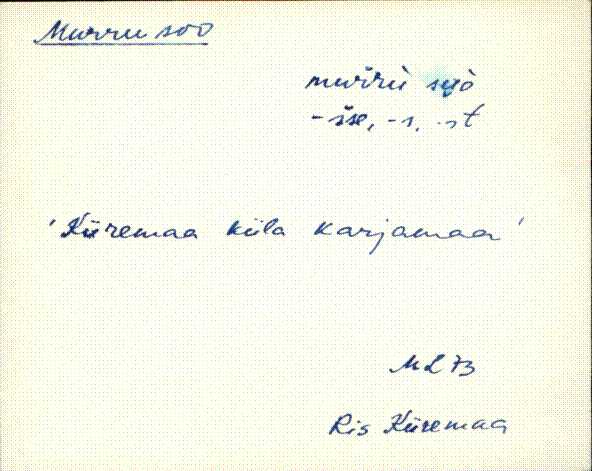 Murru soo
murrù sùo
-sse, -s, -st
'Küremaa küla karjamaa'
ML 73
Ris Küremaa